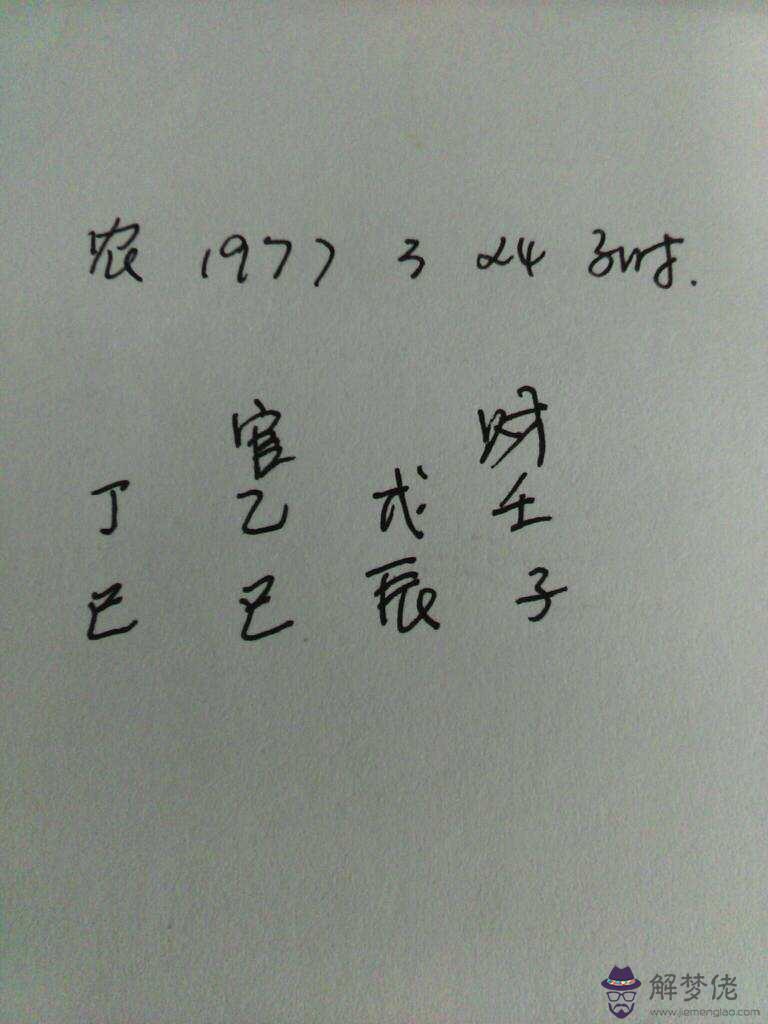 农 1977 3 24 子时.
官 财
丁 乙 戊 壬
巳 巳 辰 子
解梦佬
www.jiemenglao.com